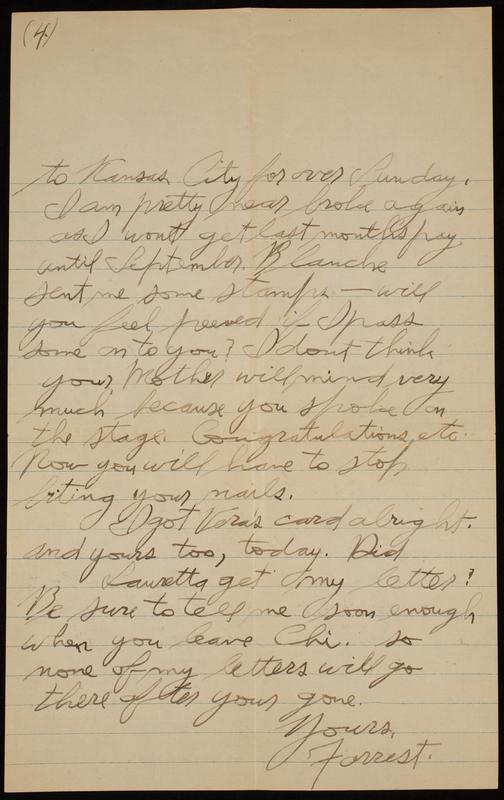 (4)
to Kansas City for over Sunday.
I am pretty near broke again
as I wont get last months pay
until September. Blanche
sent me some stamps — will
you feel peeved if I pass
some on to you? I dont think
your Mother will mind very
much because you spoke on
the stage. Congratulations, etc.
Now you will have to stop
biting your nails.
I got Vera's card alright.
and yours too, today. Did
Lauretta get my letter?
Be sure to tell me soon enough
when you leave Chi. so
none of my letters will go
there after your gone.
Yours,
Forrest.